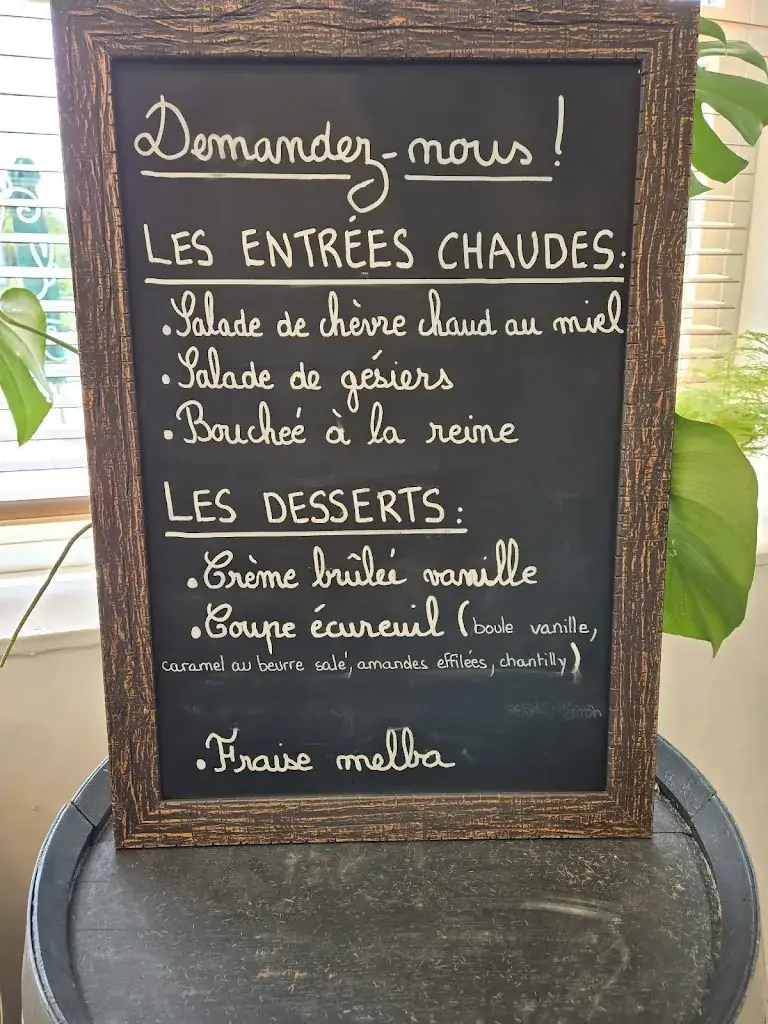 Demandez-nous !
LES ENTRÉES CHAUDES:
• Salade de chèvre chaud au miel
• Salade de gésiers
• Bouchée à la reine
LES DESSERTS:
• Crème brûlée vanille
• Coupe écureuil (boule vanille,
caramel au beurre salé, amandes effilées, chantilly)
• Fraise melba